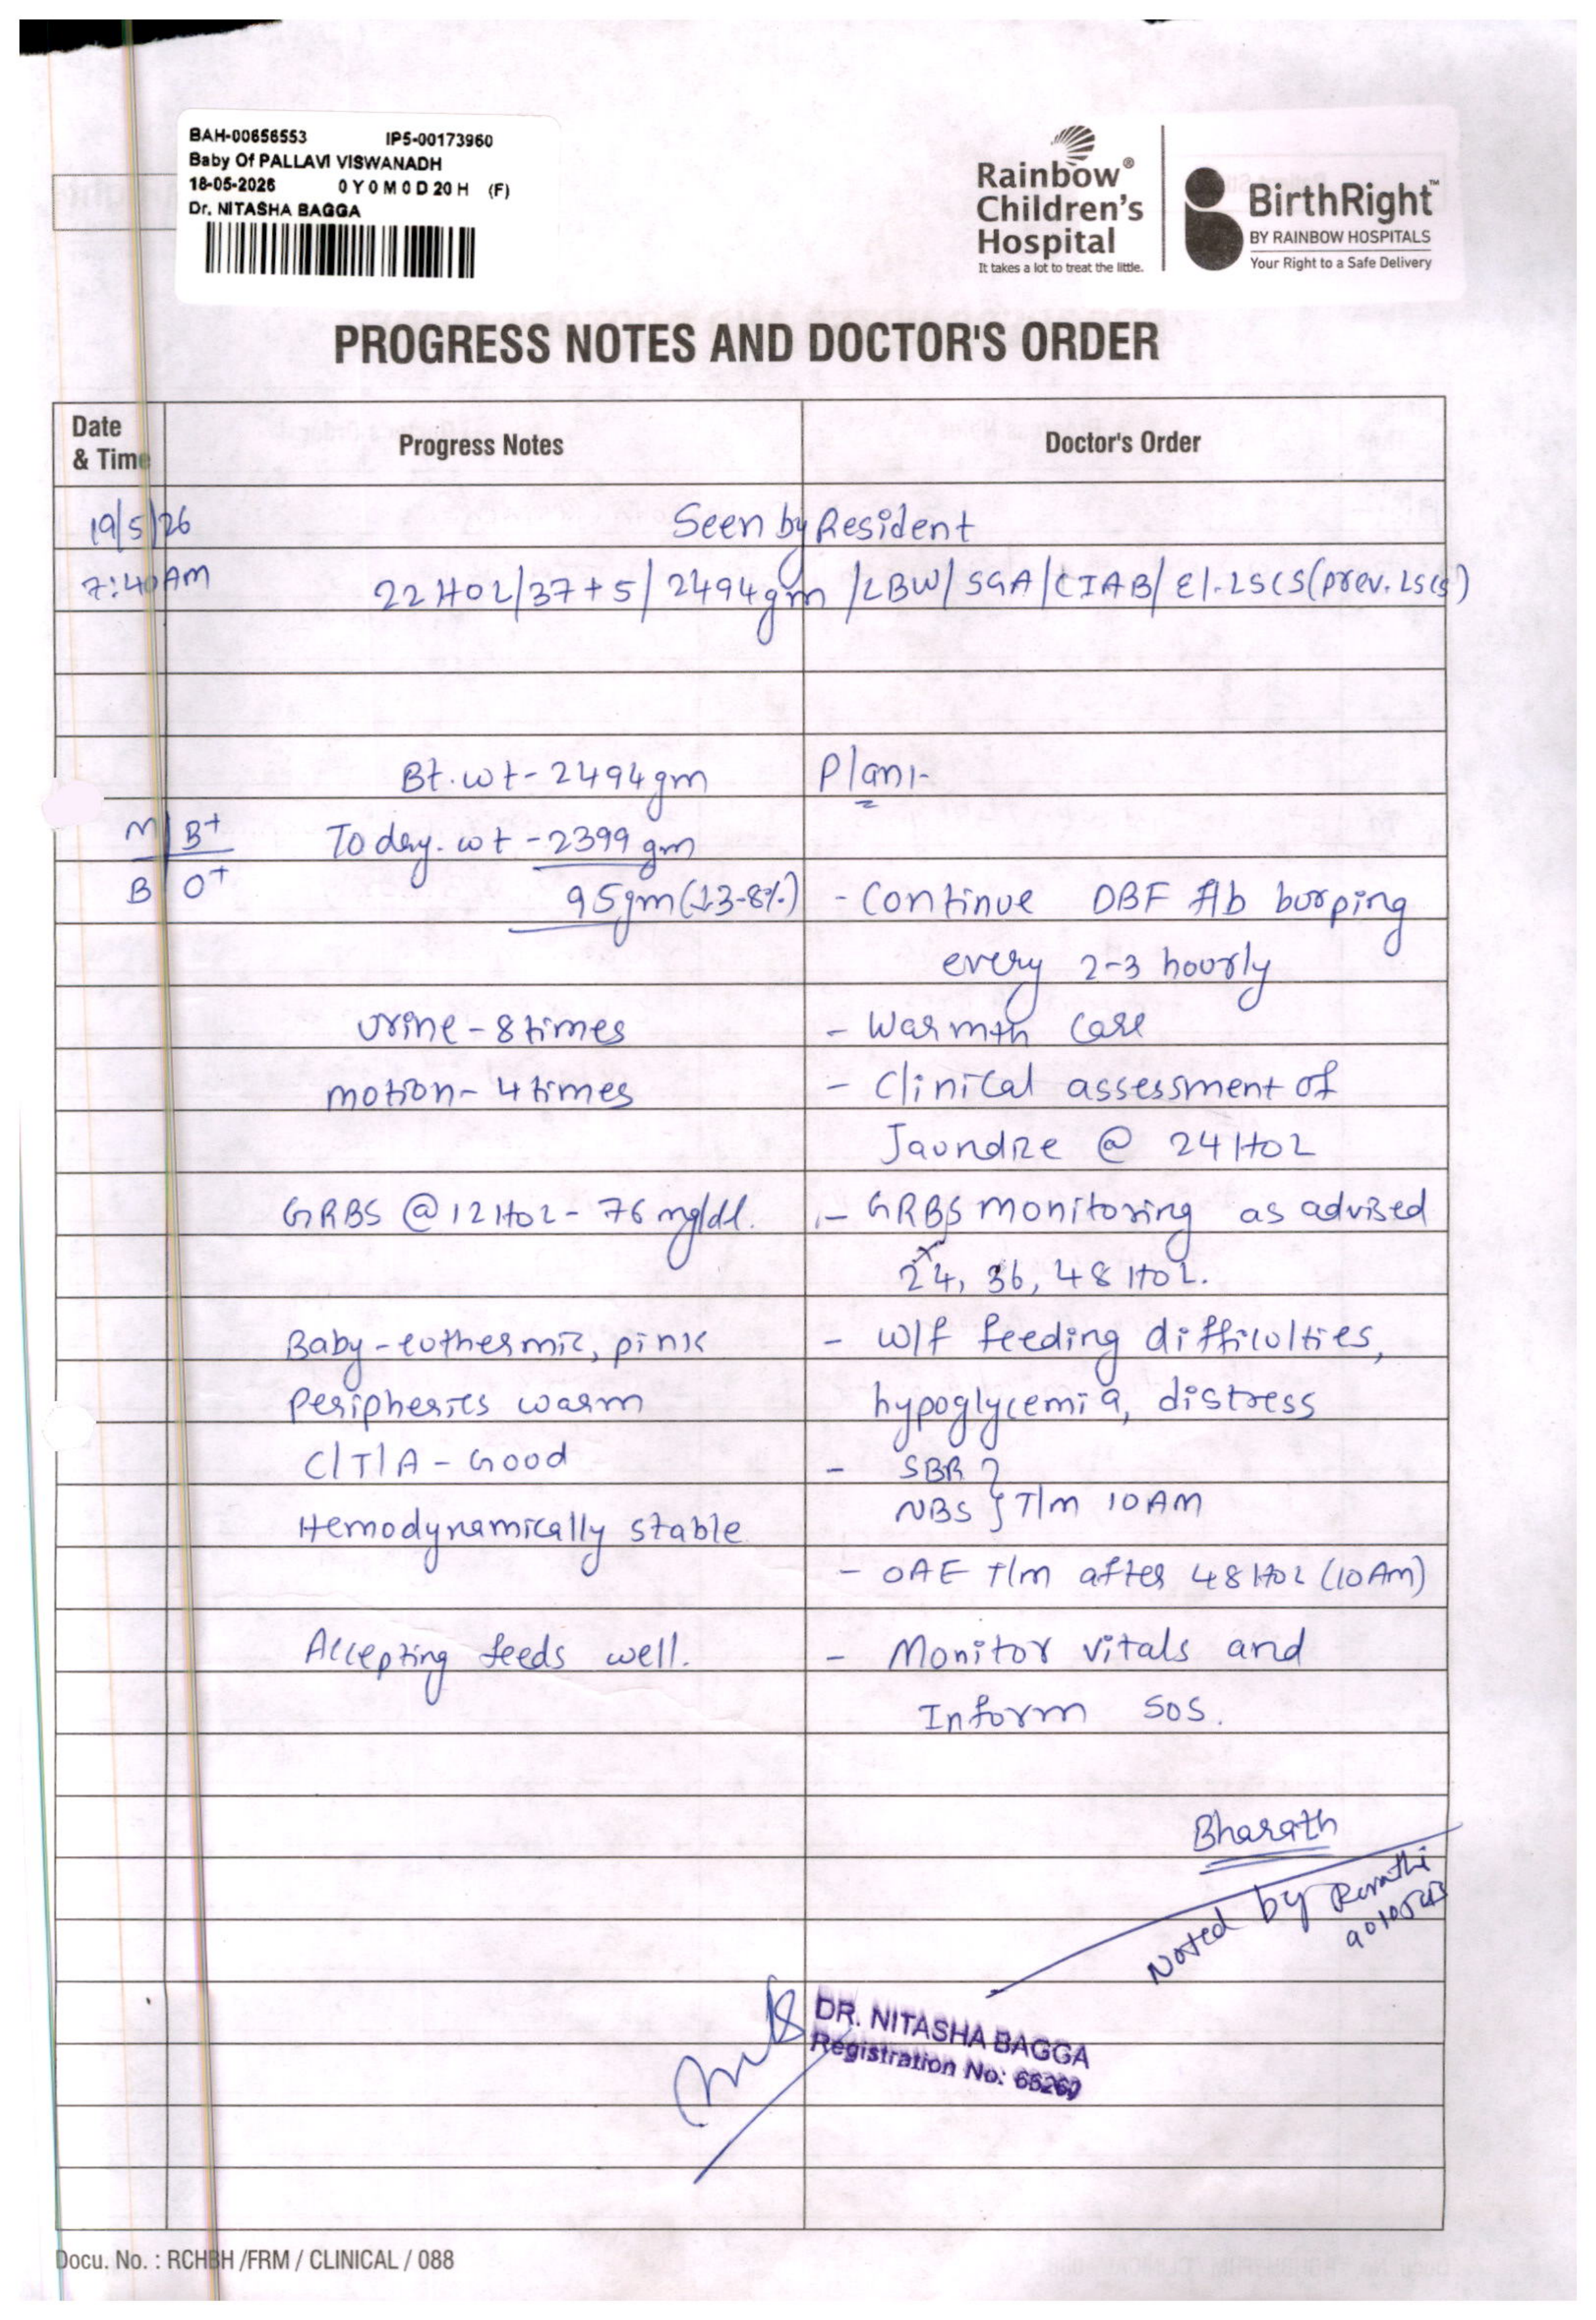 BAH-00656553 IP5-00173960
Baby Of PALLAVI VISWANADH
18-05-2026 0 Y 0 M 0 D 20 H (F)
Dr. NITASHA BAGGA
Rainbow®
Children's
Hospital
It takes a lot to treat the little.
BirthRight™
BY RAINBOW HOSPITALS
Your Right to a Safe Delivery
PROGRESS NOTES AND DOCTOR'S ORDER
Date & Time Progress Notes Doctor's Order
19/5/26 Seen by Resident
7:40AM 22HOL/37+5/2494gm/LBW/SGA/CIAB/El.LSCS(prev.LSCS)
Bt.wt-2494gm Plan:-
M B+ Today.wt-2399gm
B O+ 95gm(↓3-8%) - Continue DBF f/b burping
every 2-3 hourly
urine-8times - Warmth care
motion-4times - Clinical assessment of
Jaundice @ 24HOL
GRBS @12HOL-76mg/dl. - GRBS monitoring as advised
24, 36, 48 HOL.
Baby-euthermic, pink - W/f feeding difficulties,
Peripheries warm hypoglycemia, distress
C/T/A-Good - SBR
Hemodynamically stable NBS } T/m 10AM
- OAE T/m after 48HOL (10Am)
Accepting feeds well. - Monitor vitals and
Inform SOS.
Bharath
Noted by
DR. NITASHA BAGGA
Registration No:
Docu. No. : RCHBH /FRM / CLINICAL / 088